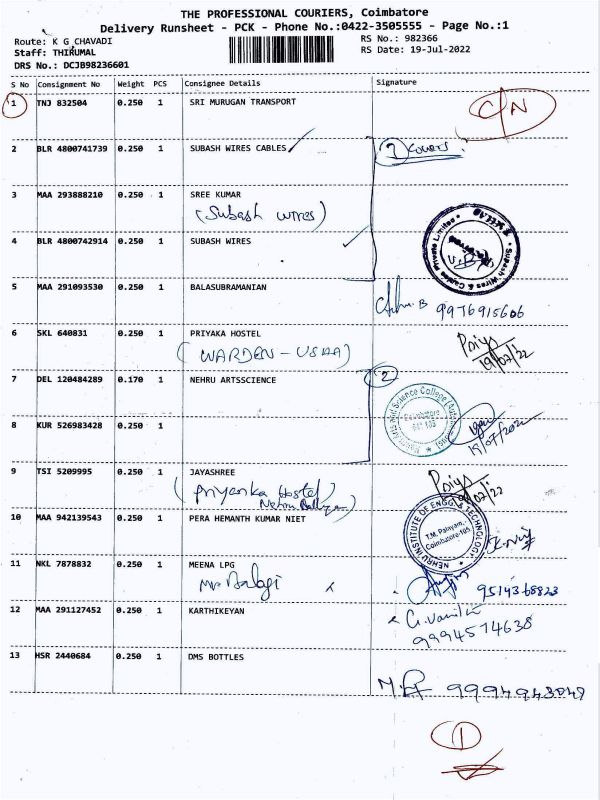 THE PROFESSIONAL COURIERS, Coimbatore
Delivery Runsheet - PCK - Phone No.:0422-3505555 - Page No.:1
Route: K G CHAVADI
Staff: THIRUMAL
DRS No.: DCJB98236601
RS No.: 982366
RS Date: 19-Jul-2022
S No Consignment No Weight PCS Consignee Details Signature
1 TNJ 832504 0.250 1 SRI MURUGAN TRANSPORT C/N
2 BLR 4800741739 0.250 1 SUBASH WIRES CABLES Covers
3 MAA 293888210 0.250 1 SREE KUMAR
(Subash wires)
4 BLR 4800742914 0.250 1 SUBASH WIRES
Subash Wires & Cables Private Limited
5 MAA 291093530 0.250 1 BALASUBRAMANIAN
9976915606
6 SKL 640831 0.250 1 PRIYAKA HOSTEL Priya
(WARDEN - USHA) 19/07/22
7 DEL 120484289 0.170 1 NEHRU ARTSSCIENCE 2
Arts and Science College
Coimbatore
8 KUR 526983428 0.250 1
19/07/2022
9 TSI 5209995 0.250 1 JAYASHREE Priya
(Priyanka Hostel
Nehru College)
10 MAA 942139543 0.250 1 PERA HEMANTH KUMAR NIET
NEHRU INSTITUTE OF ENGG. & TECHNOLOGY
T.M. Palayam,
Coimbatore-105
11 NKL 7878832 0.250 1 MEENA LPG
Mr Balaji x 9514368823
12 MAA 291127452 0.250 1 KARTHIKEYAN G. Vanitha
9994574638
13 HSR 2440684 0.250 1 DMS BOTTLES
1